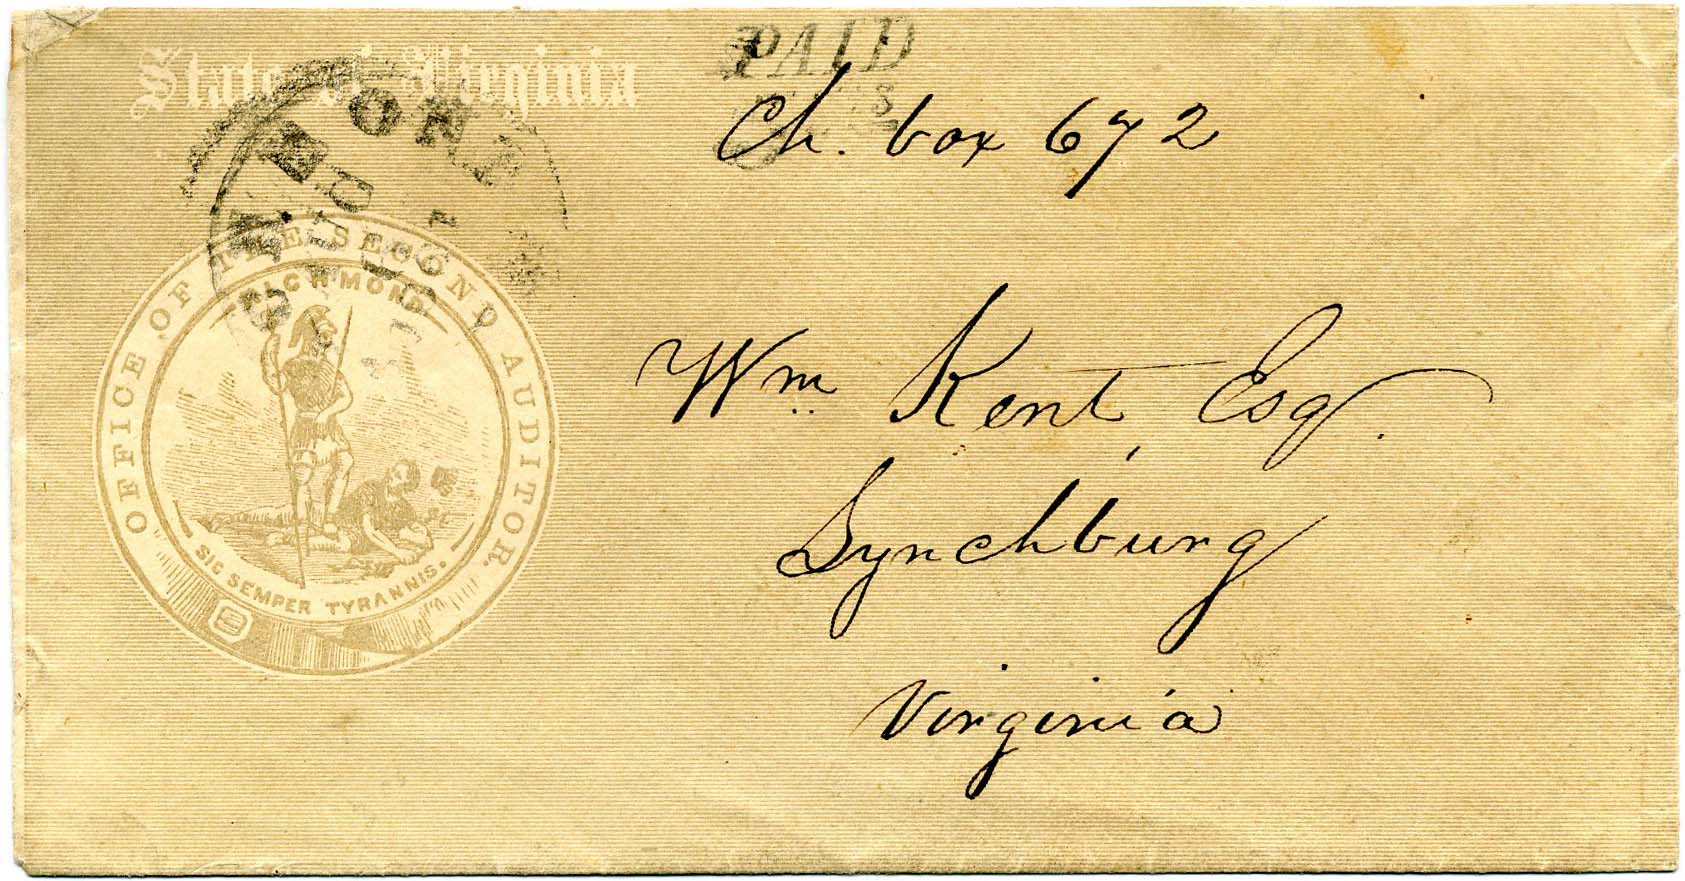 State of Virginia
PAID
Ch. box 672
OFFICE OF THE SECOND AUDITOR.
RICHMOND
SIC SEMPER TYRANNIS.
Wm Kent, Esq.
Lynchburg
Virginia